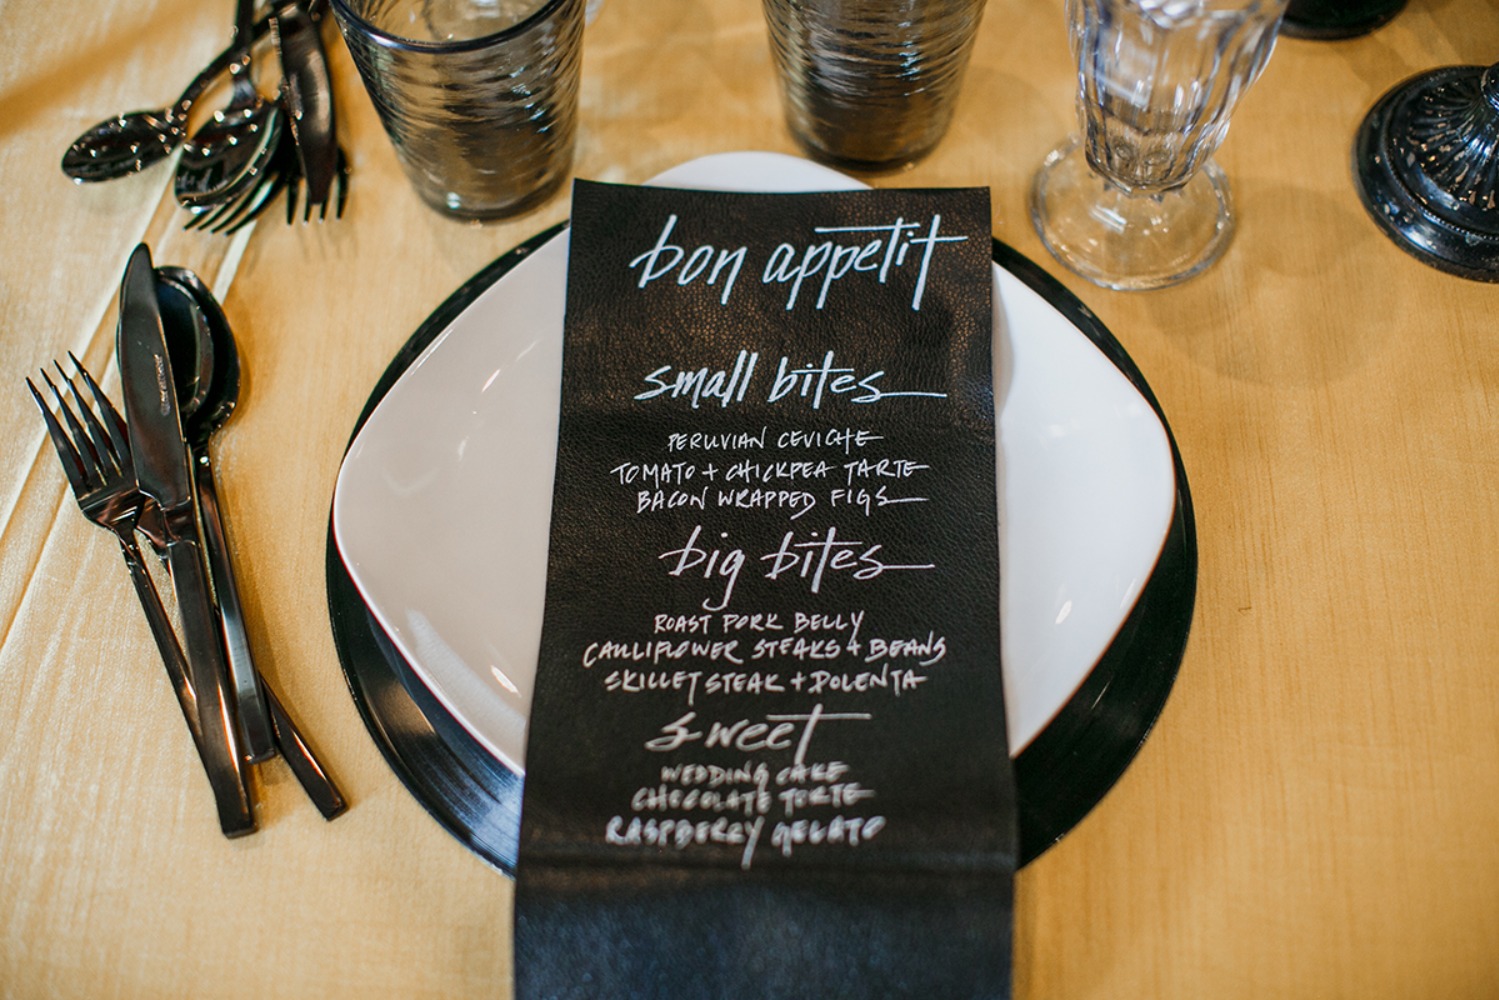 bon appetit
small bites
PERUVIAN CEVICHE
TOMATO + CHICKPEA TARTE
BACON WRAPPED FIGS
big bites
ROAST PORK BELLY
CAULIFLOWER STEAKS + BEANS
SKILLET STEAK + POLENTA
sweet
WEDDING CAKE
CHOCOLATE TORTE
RASPBERRY GELATO